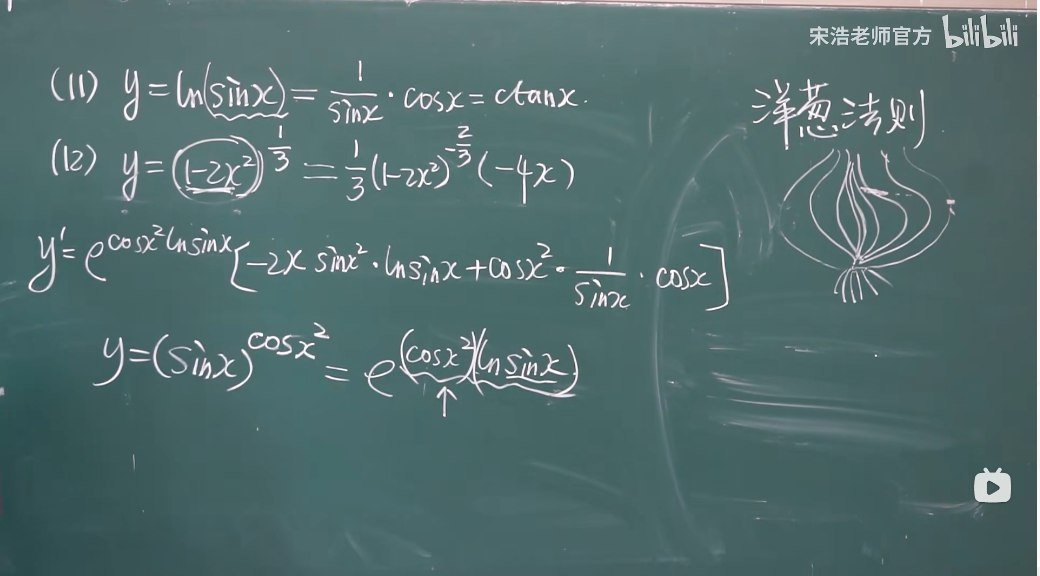 宋浩老师官方 bilibili
(11) y=ln(sinx)=1/sinx·cosx=ctanx.
洋葱法则
(12) y=(1-2x²)^{1/3}=1/3(1-2x²)^{-2/3}(-4x)
y'=e^{cosx²lnsinx}[-2x sinx²·lnsinx+cosx²·1/sinx·cosx]
y=(sinx)^{cosx²}=e^{(cosx²)(lnsinx)}